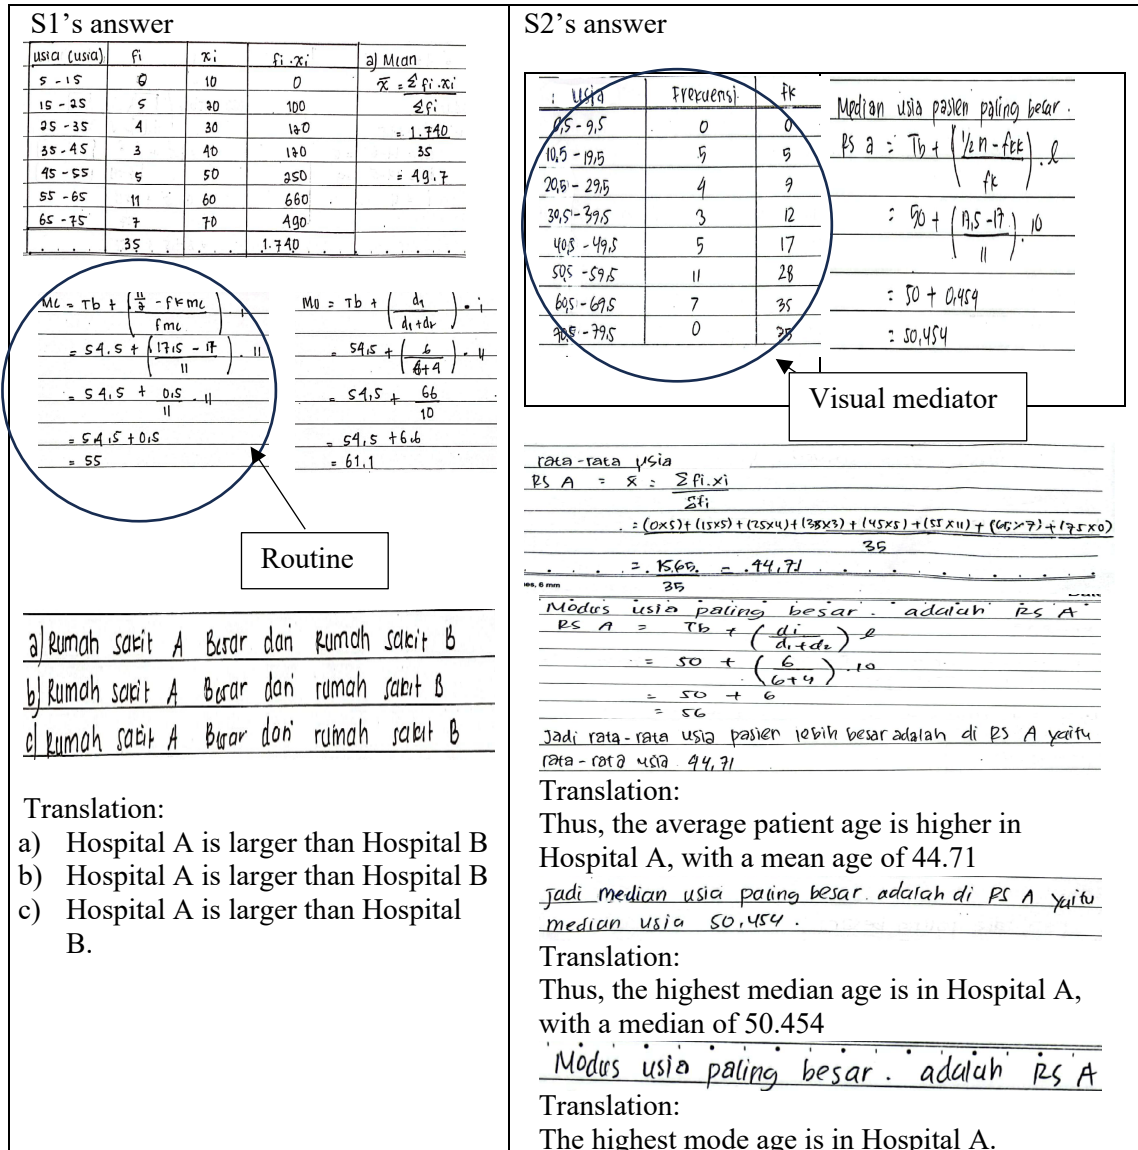 S1’s answer
usia (usia) fi xi fi.xi a) Mean
5 - 15 0 10 0 x̄ = Σ fi.xi
15 - 25 5 20 100 Σfi
25 - 35 4 30 120 = 1.740
35 - 45 3 40 120 35
45 - 55 5 50 250 = 49.7
55 - 65 11 60 660
65 - 75 7 70 490
35 1.740
Me = Tb + ( n/2 - fkme / fme ) . i
= 54.5 + ( 17.5 - 17 / 11 ) . 11
= 54.5 + 0.5 / 11 . 11
= 54.5 + 0.5
= 55
Mo = Tb + ( d1 / d1+d2 ) . i
= 54.5 + ( 6 / 6+4 ) . 11
= 54.5 + 66 / 10
= 54.5 + 6.6
= 61.1
Routine
a) Rumah sakit A Besar dari Rumah sakit B
b) Rumah sakit A Besar dari rumah sakit B
c) Rumah sakit A Besar dari rumah sakit B
Translation:
a) Hospital A is larger than Hospital B
b) Hospital A is larger than Hospital B
c) Hospital A is larger than Hospital
B.
S2’s answer
Usia Frekuensi fk
0,5 - 9,5 0 0
10,5 - 19,5 5 5
20,5 - 29,5 4 9
30,5 - 39,5 3 12
40,5 - 49,5 5 17
50,5 - 59,5 11 28
60,5 - 69,5 7 35
70,5 - 79,5 0 35
Median usia pasien paling besar.
RS a = Tb + ( ½ n - fkk / fk ) . l
= 50 + ( 17,5 - 17 / 11 ) . 10
= 50 + 0,454
= 50,454
Visual mediator
rata-rata usia
RS A = x̄ = Σ fi.xi
Σfi
= (0x5) + (15x5) + (25x4) + (35x3) + (45x5) + (55x11) + (65x7) + (75x0)
35
= 1565 = 44,71
35
es, 6 mm
Modus usia paling besar. adalah RS A
RS A = Tb + ( di / d1+d2 ) l
= 50 + ( 6 / 6+4 ) . 10
= 50 + 6
= 56
Jadi rata-rata usia pasien lebih besar adalah di RS A yaitu
rata-rata usia 44,71
Translation:
Thus, the average patient age is higher in
Hospital A, with a mean age of 44.71
Jadi median usia paling besar. adalah di RS A yaitu
median usia 50,454.
Translation:
Thus, the highest median age is in Hospital A,
with a median of 50.454
Modus usia paling besar. adalah RS A
Translation:
The highest mode age is in Hospital A.